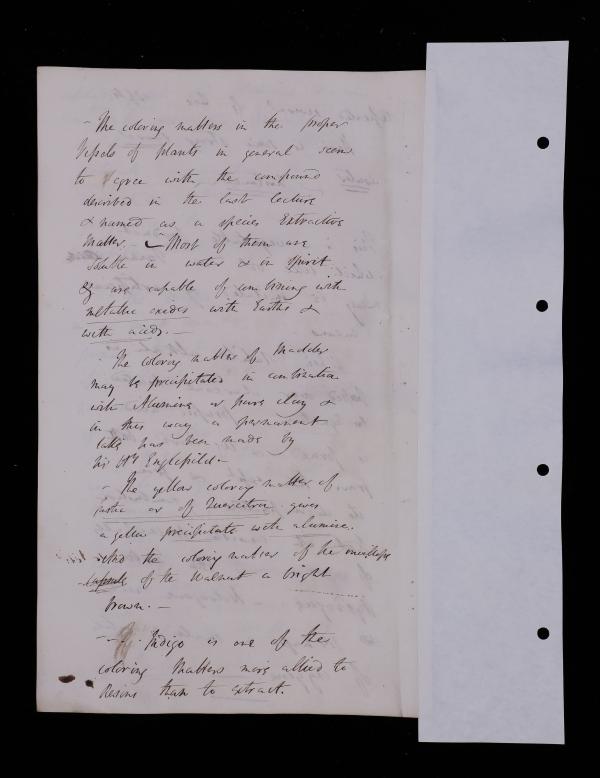 - The coloring matters in the proper
Vessels of plants in general seem
to agree with the compound
described in the last lecture
& named as a species Extractive
Matter. - Most of them are
soluble in water & in spirit
& are capable of combining with
metallic oxides with Earths &
with acids. -
- The coloring matter of Madder
may be precipitated in combination
with Alumina or pure clay &
in this way a permanent
lake has been made by
Sir H Englefield -
- The yellow coloring matter of
fustic or of Quercitron gives
a yellow precipitate with alumine.
And the coloring matter of the
capsule of the Walnut a bright
brown. -
- Indigo is one of the
coloring Matters more allied to
Resins than to extract.